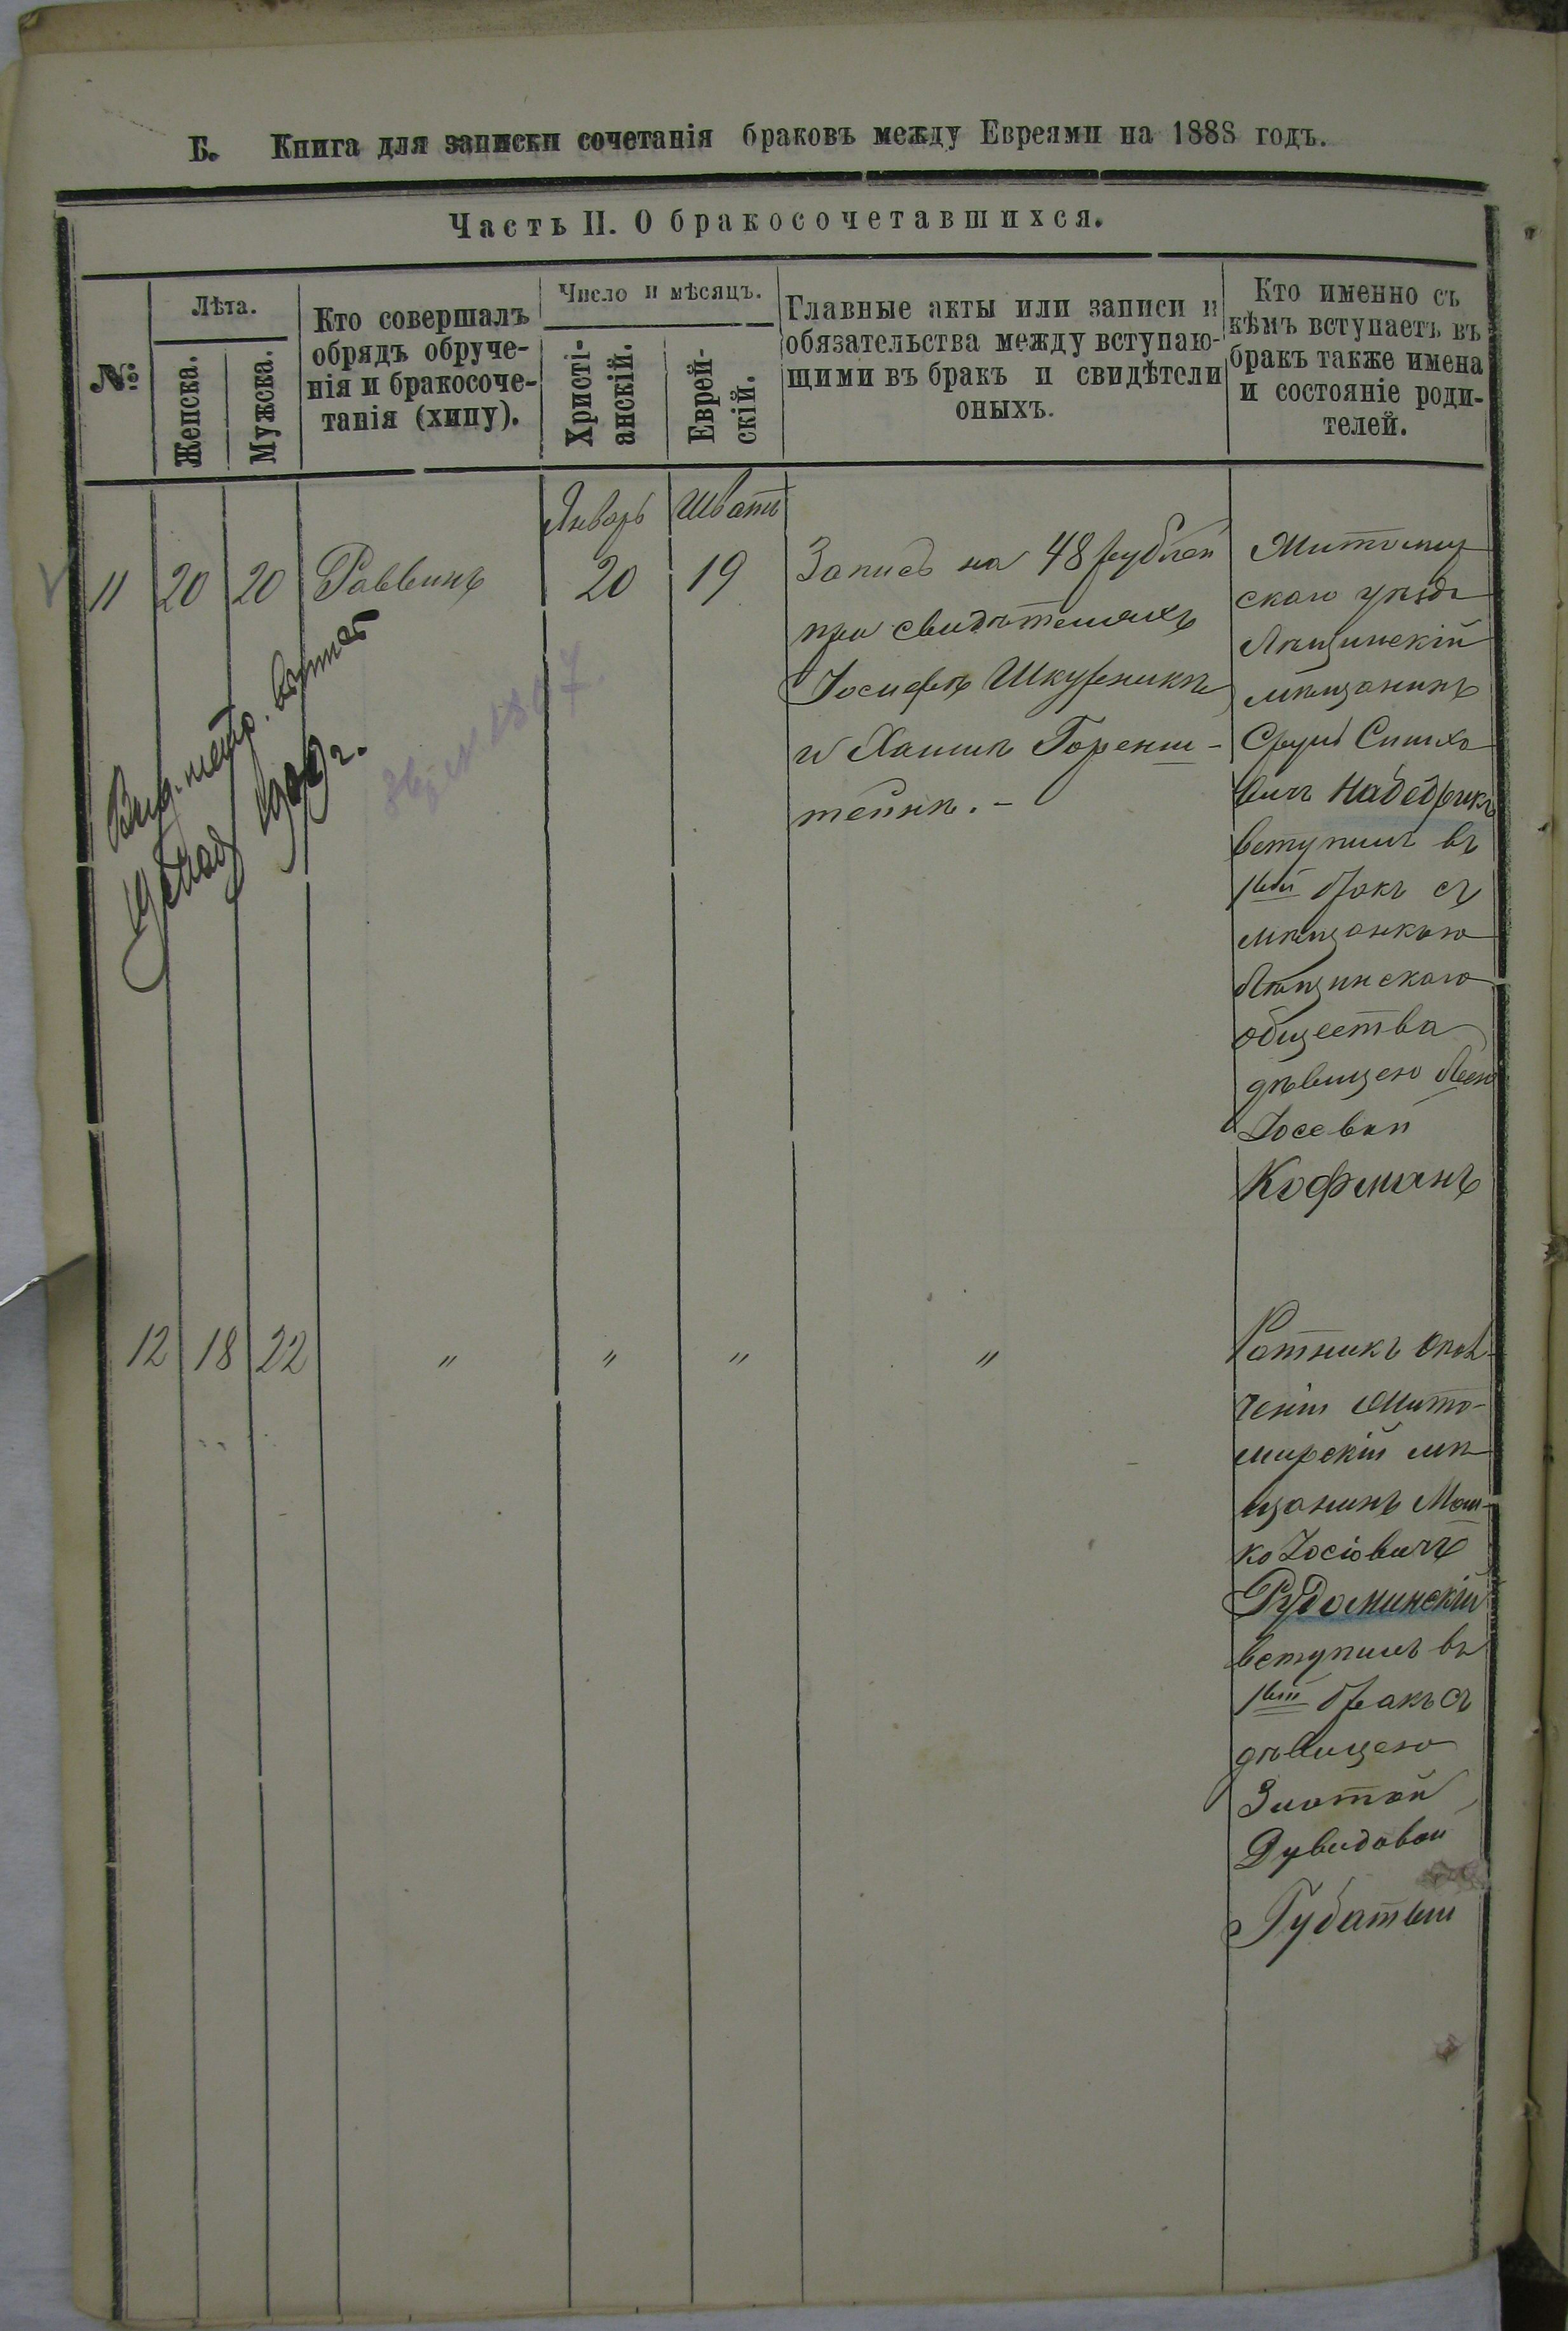 Б. Книга для записки сочетанія браковъ между Евреями на 1888 годъ.
Часть II. О бракосочетавшихся.
№
Лѣта.
Женска.
Мужска.
Кто совершалъ
обрядъ обруче-
нія и бракосоче-
танія (хипу).
Число и мѣсяцъ.
Христі-
анскій.
Еврей-
скій.
Главные акты или записи и
обязательства между вступаю-
щими въ бракъ и свидѣтели
оныхъ.
Кто именно съ
кѣмъ вступаетъ въ
бракъ также имена
и состояніе роди-
телей.
Январь Шватъ
11 20 20 Раввинъ 20 19
Запись на 48 рублей
при свидѣтеляхъ
Іосифѣ Шкурникѣ
и Хаимѣ Горенш-
тейнѣ. -
Житомир
скаго уѣзда
мѣщанинъ
Сруль Симхо
вичъ Набедрикъ
вступилъ въ
1вый бракъ съ
мѣщанкою
общества
дѣвицею
Іосевой
Кофманъ
Выд. метр. выпись
19 мая 1909 г.
12 18 22 " " " "
Ратникъ опол-
ченія Жито-
мирскій мѣ
щанинъ Мош-
ко Іосіовичъ
Рудоминскій
вступилъ въ
1вый бракъ съ
дѣвицею
Златой
Дувидовой